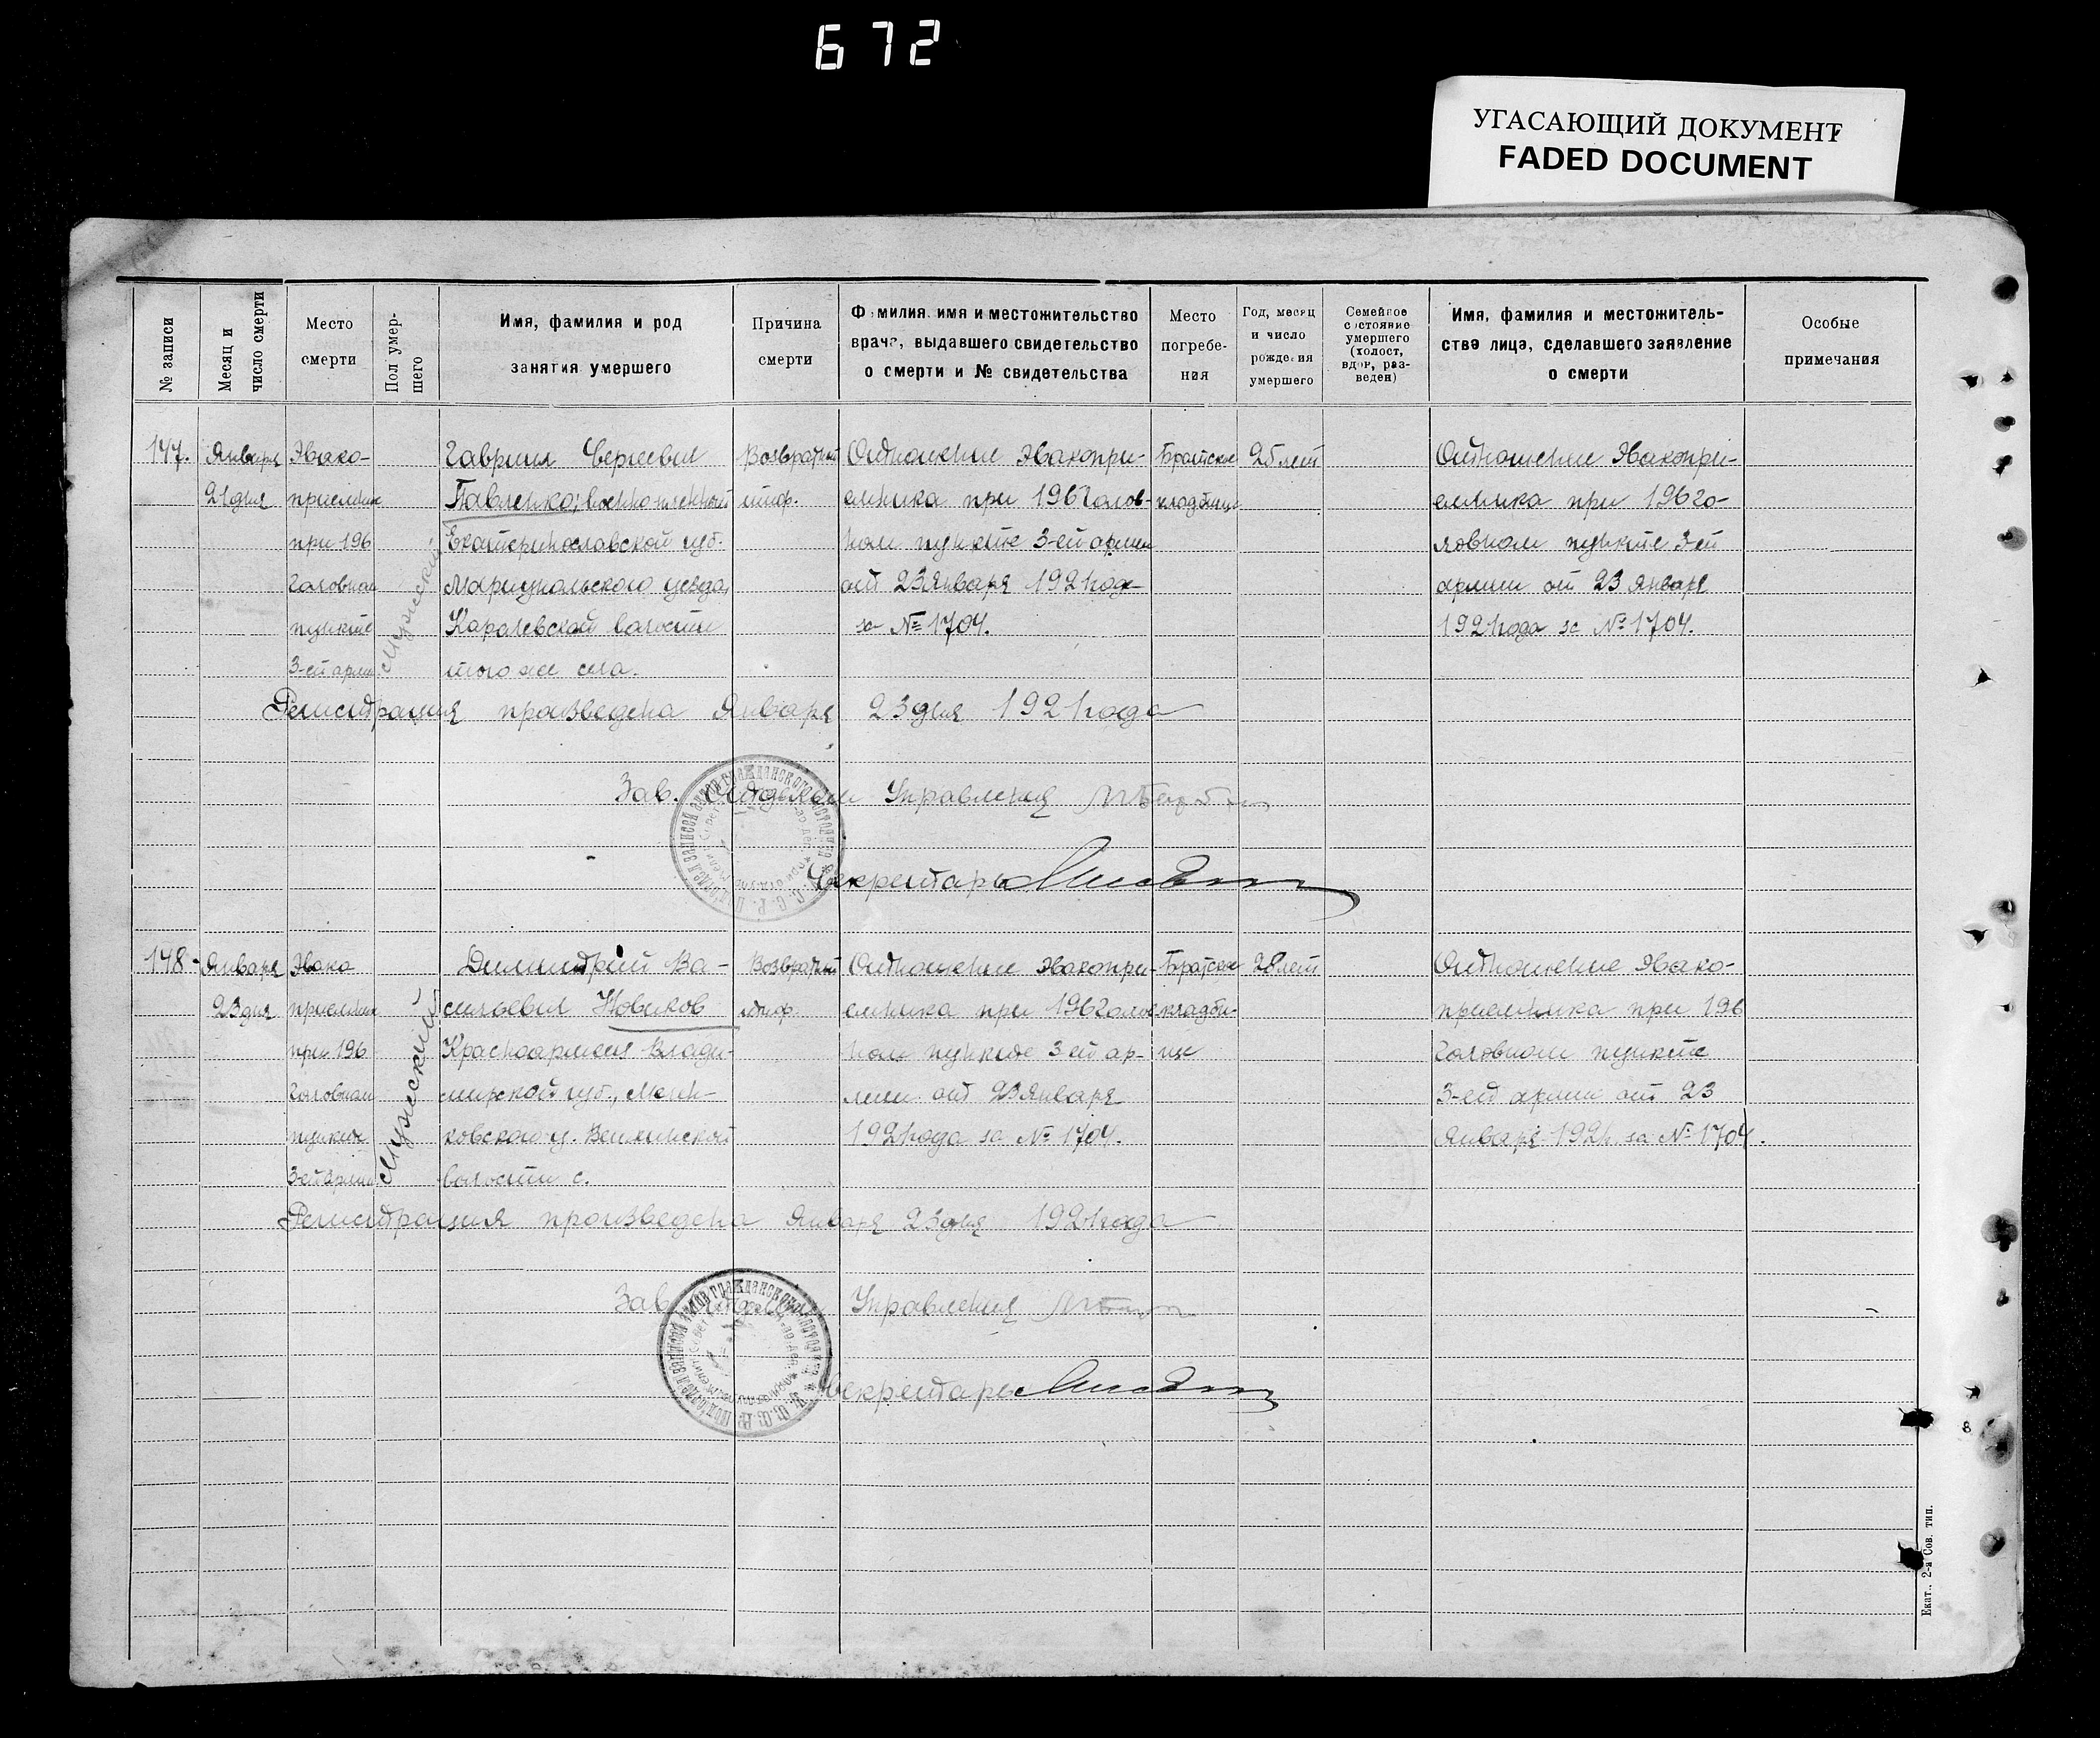 672
УГАСАЮЩИЙ ДОКУМЕНТ
FADED DOCUMENT
№ записи
Месяц и
число смерти
Место
смерти
Пол умер-
шего
Имя, фамилия и род
занятия умершего
Причина
смерти
Фамилия, имя и местожительство
врача, выдавшего свидетельство
о смерти и № свидетельства
Место
погребе-
ния
Год, месяц
и число
рождения
умершего
Семейное
состояние
умершего
(холост,
вдов, раз-
веден)
Имя, фамилия и местожитель-
ства лица, сделавшего заявление
о смерти
Особые
примечания
147.
Января
21 дня
Эвако-
приемник
при 196
Головном
пункте
3-ей арми
Мужской
Гавриил Сергеевич
Павленко; военнопленный
Екатеринославской губ.
Мариупольского уезда,
Каравской волости
того же села.
Возвратный
тиф.
Отношение Эвакопри-
емника при 196 голов-
ном пункте 3-ей армии
от 23 Января 1921 года
за № 1704.
Братское
кладбище
25 лет
Отношение Эвакопри-
емника при 196 го-
ловном пункте 3-ей
армии от 23 Января
1921 года за № 1704.
Регистрация произведена Января 23 дня 1921 года
Зав. Отделом Управления
Секретарь
148
Января
23 дня
Эвако
приемник
при 196
Головном
пункте
3-ей армии
Мужской
Димитрий Ва-
сильевич Новиков
Красноармеец Влади-
мирской губ.,
волости с.
Возвратный
тиф.
Отношение Эвакопри-
емника при 196 голов
ном пункте 3 ей ар-
мии от 23 Января
1921 года за № 1704.
Братское
кладби-
ще
28 лет
Отношение Эвако-
приемника при 196
Головном пункте
3-ей армии от 23
Января 1921 г. за № 1704.
Регистрация произведена Января 23 дня 1921 года
Зав. Управления
Секретарь
8
Екат., 2-я Сов. тип.